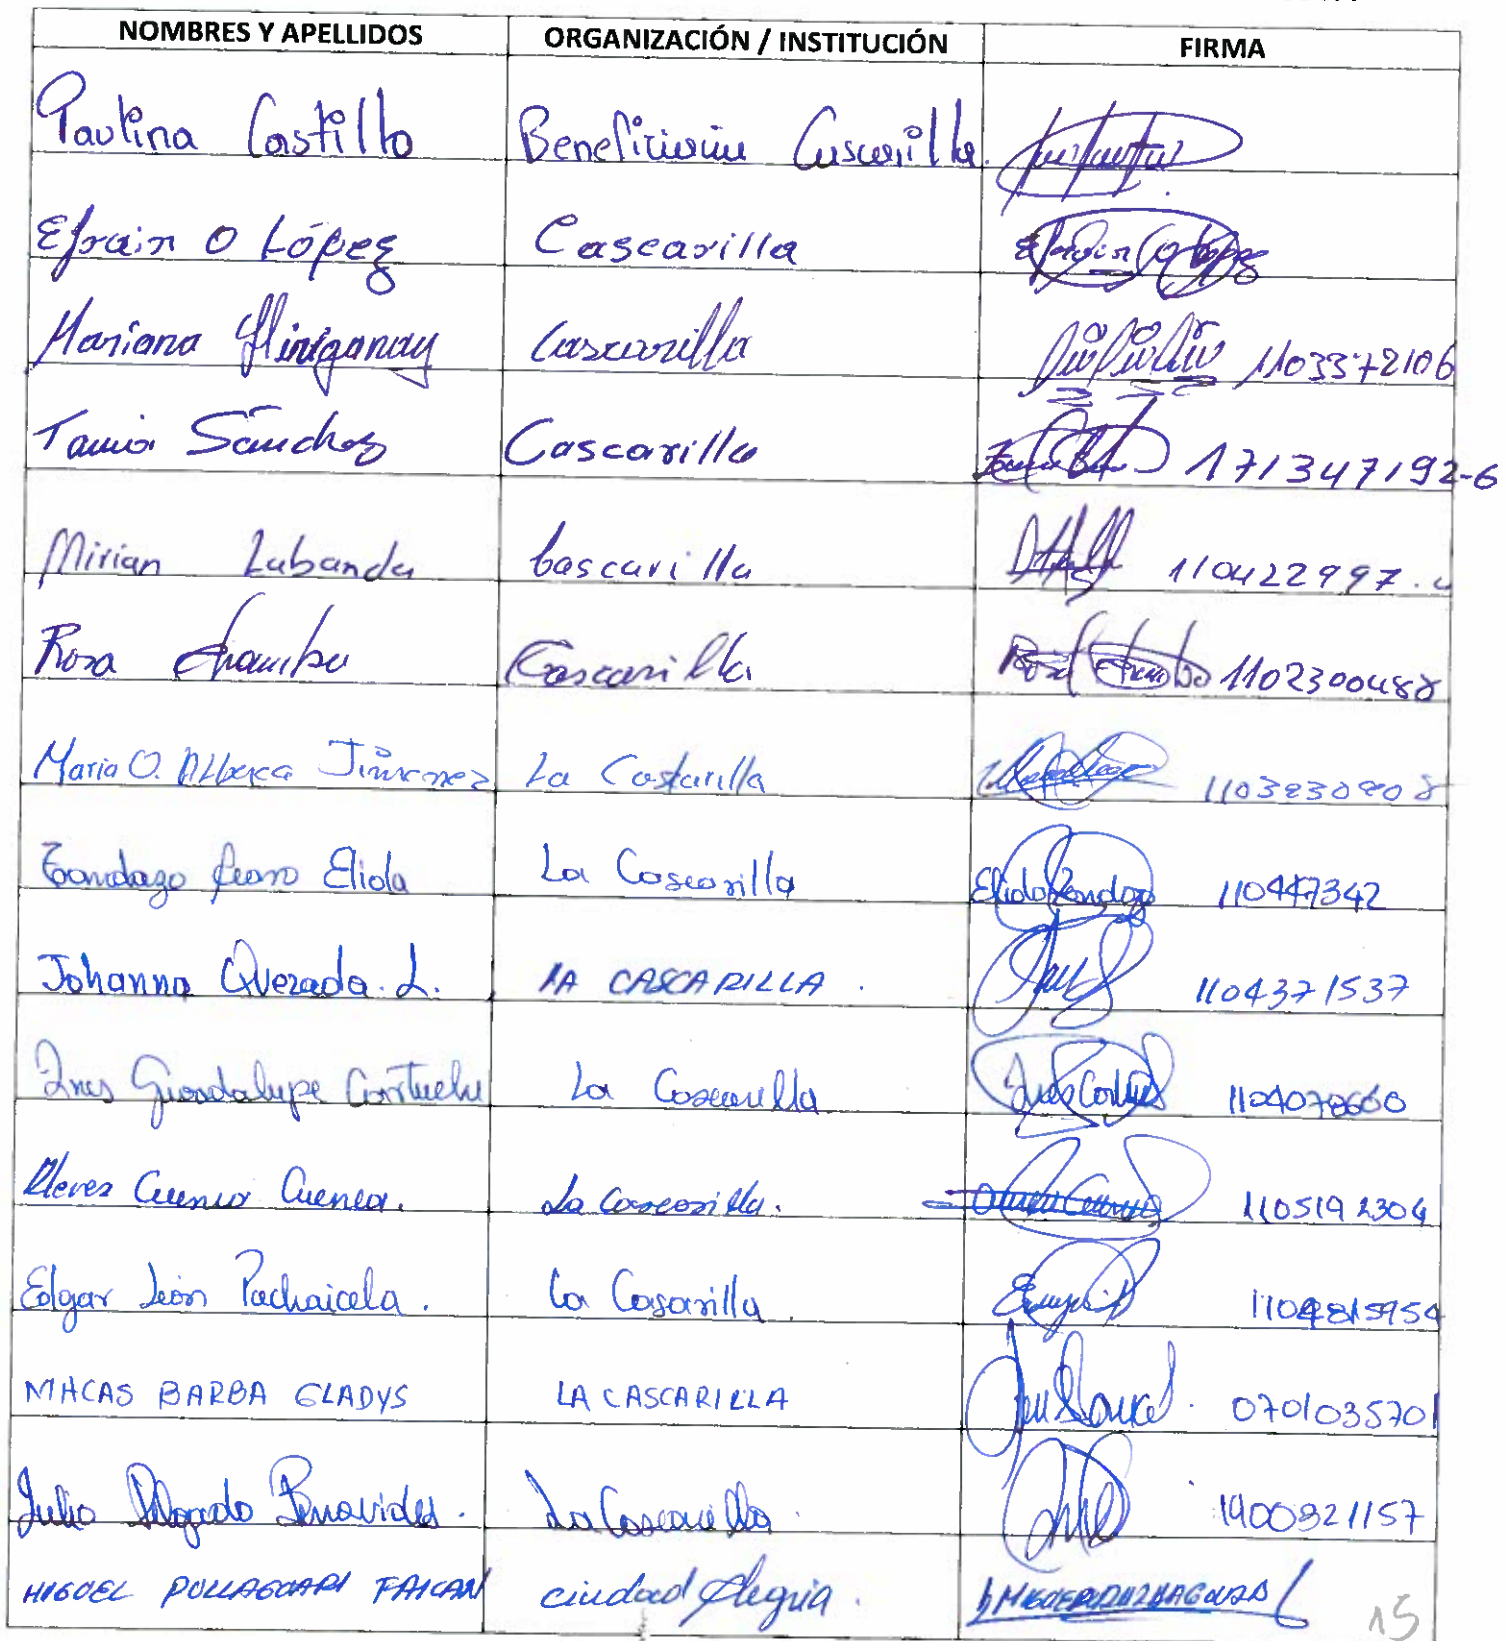 NOMBRES Y APELLIDOS ORGANIZACIÓN / INSTITUCIÓN FIRMA
Paulina Castillo Beneficiaria Cascarilla.
Efrain O López Cascarilla Efrain O López
Mariana Cascarilla 1103372106
Tania Sánchez Cascarilla 171347192-6
Mirian Labanda Cascarilla 110422997.
Rosa Chamba Cascarilla 1102300488
Maria O. Alberca Jimenez La Cascarilla
Tandazo Elida La Cascarilla Elida Tandazo 110447342
Johanna Quezada. L. LA CASCARILLA. 1104371537
Ines Guadalupe La Cascarilla 1104078660
Cuenca Cuenca. La Cascarilla. 1105192304
Edgar León Pachaicela. La Casarilla
MACAS BARBA GLADYS LA CASCARILLA 0701035701
Julio Delgado Benavides. La Cascarilla. 1900321157
MIGUEL FAICAN ciudad Alegria.
15